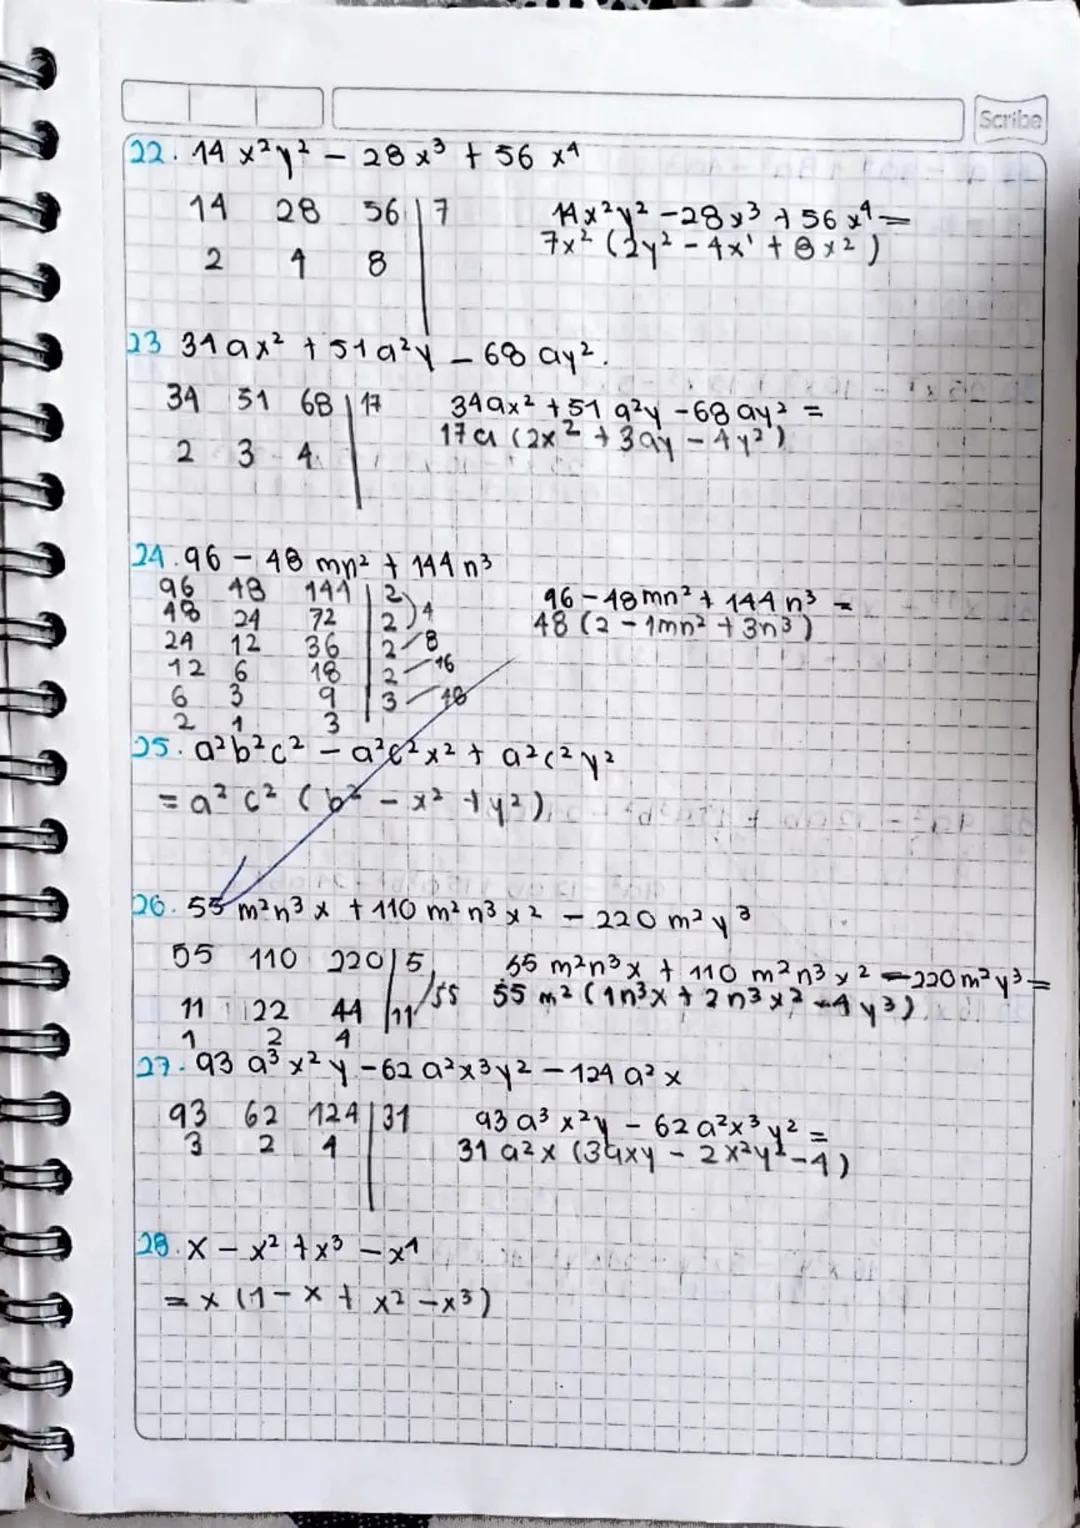 Scribe
22. 14 x²y² - 28 x³ + 56 x⁴
14 28 56 | 7
2 4 8
14x²y² - 28x³ + 56x⁴ =
7x² (2y² - 4x¹ + 8x²)
23 34ax² + 51a²y - 68 ay².
34 51 68 | 17
2 3 4
34ax² + 51a²y - 68ay² =
17a (2x² + 3ay - 4y²)
24. 96 - 48 mn² + 144 n³
96 48 144 | 2
48 24 72 | 2 4
24 12 36 | 2 8
12 6 18 | 2 16
6 3 9 | 3 48
2 1 3
96 - 48mn² + 144n³ =
48 (2 - 1mn² + 3n³)
25. a²b²c² - a²c²x² + a²c²y²
= a² c² (b² - x² + y²)
26. 55 m²n³x + 110 m²n³x² - 220 m²y³
55 110 220 | 5
11 22 44 | 11 55
1 2 4
55 m²n³x + 110 m²n³x² - 220m²y³ =
55 m² (1n³x + 2n³x² - 4y³)
27. 93 a³x²y - 62a²x³y² - 124 a²x
93 62 124 | 31
3 2 4
93 a³x²y - 62a²x³y² =
31 a²x (3axy - 2x²y² - 4)
28. x - x² + x³ - x⁴
= x (1 - x + x² - x³)